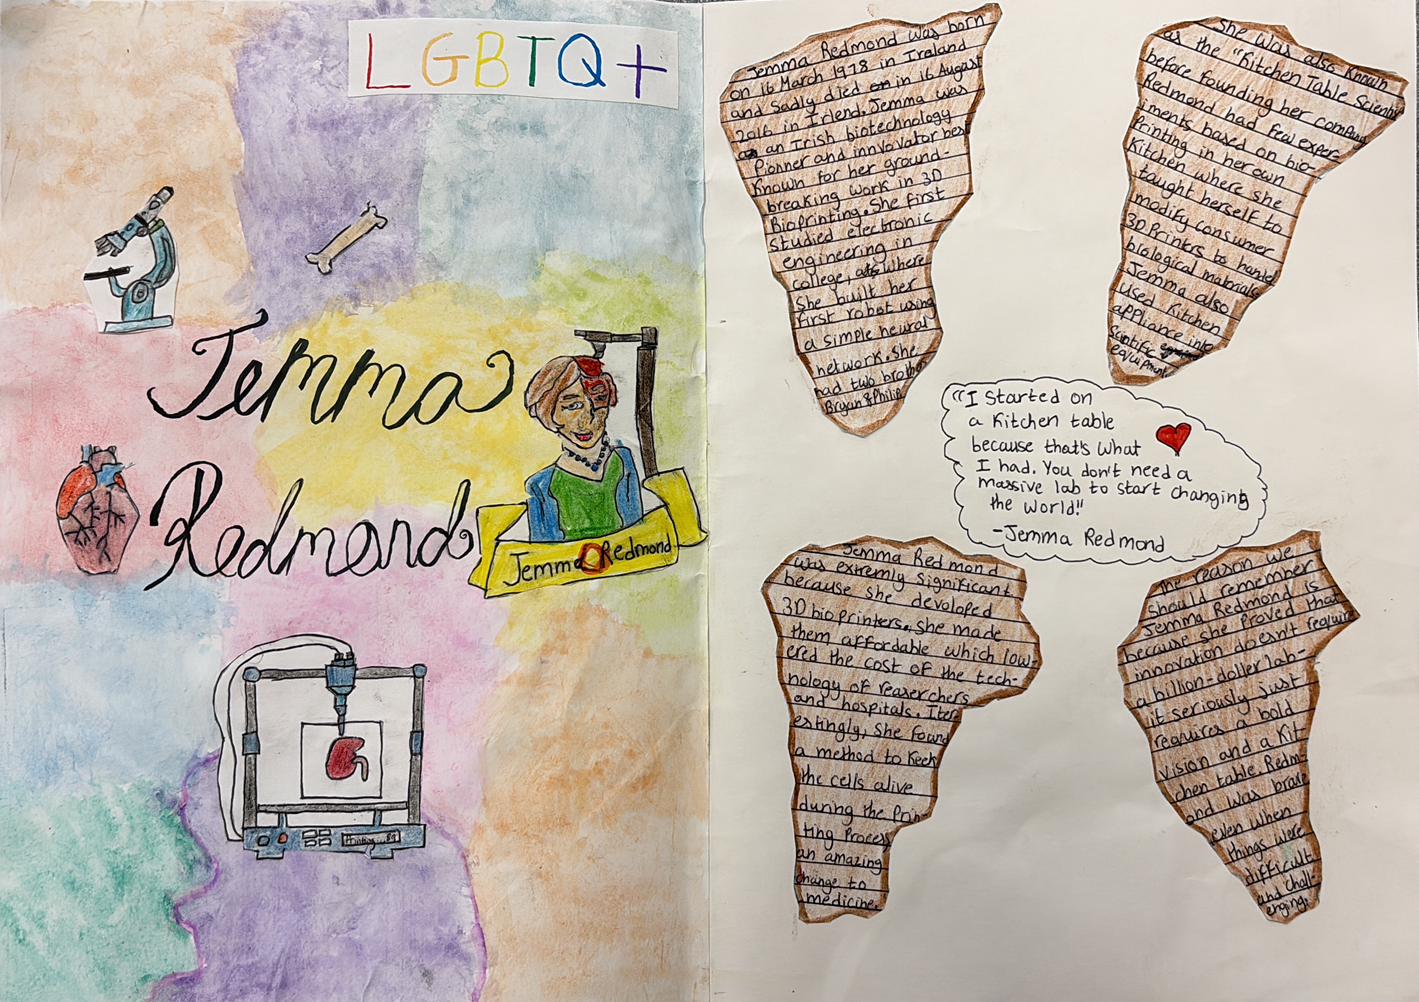 LGBTQ+
Jemma
Redmond
Jemma Redmond
Printing
Jemma Redmond was born
on 16 March 1978 in Ireland
and Sadly died in 16 August
2016 in Irlend. Jemma was
an Irish biotechnology
Pionner and innvovator best
Known for her ground-
breaking work in 3D
Bioprinting. She first
studied electronic
engineering in
college, where
She built her
first robot using
a simple neural
network. She
had two brothe
Bryan & Philip
She was also Known
as the "Kitchen Table Scientist
before founding her company
Redmond had few exper-
iments based on bio-
Printing in her own
Kitchen where she
taught herself to
modify consumer
3D Printrs to handel
biological materials
Jemma also
used Kitchen
appliance into
Scintific
equipment
"I Started on
a Kitchen table
because that's what
I had. You don't need a
massive lab to start changing
the world!"
-Jemma Redmond
Jemma Redmond
was extremly significant
because she devoloped
3D bio printers. She made
them affordable which low-
ered the cost of the tech-
nology of reaserchers
and hospitals. Iter
estingly, She found
a method to Keek
the cells alive
during the Prin-
ting Process
an amazing
change to
medicine.
The reason we
should remember
Jemma Redmond is
because she Proved that
innovation doesn't require
a billion-doller lab-
it seriously just
requires a bold
vision and a Kit
chen table. Redmo
and was brave
even when
things were
difficult
and chall-
enging.